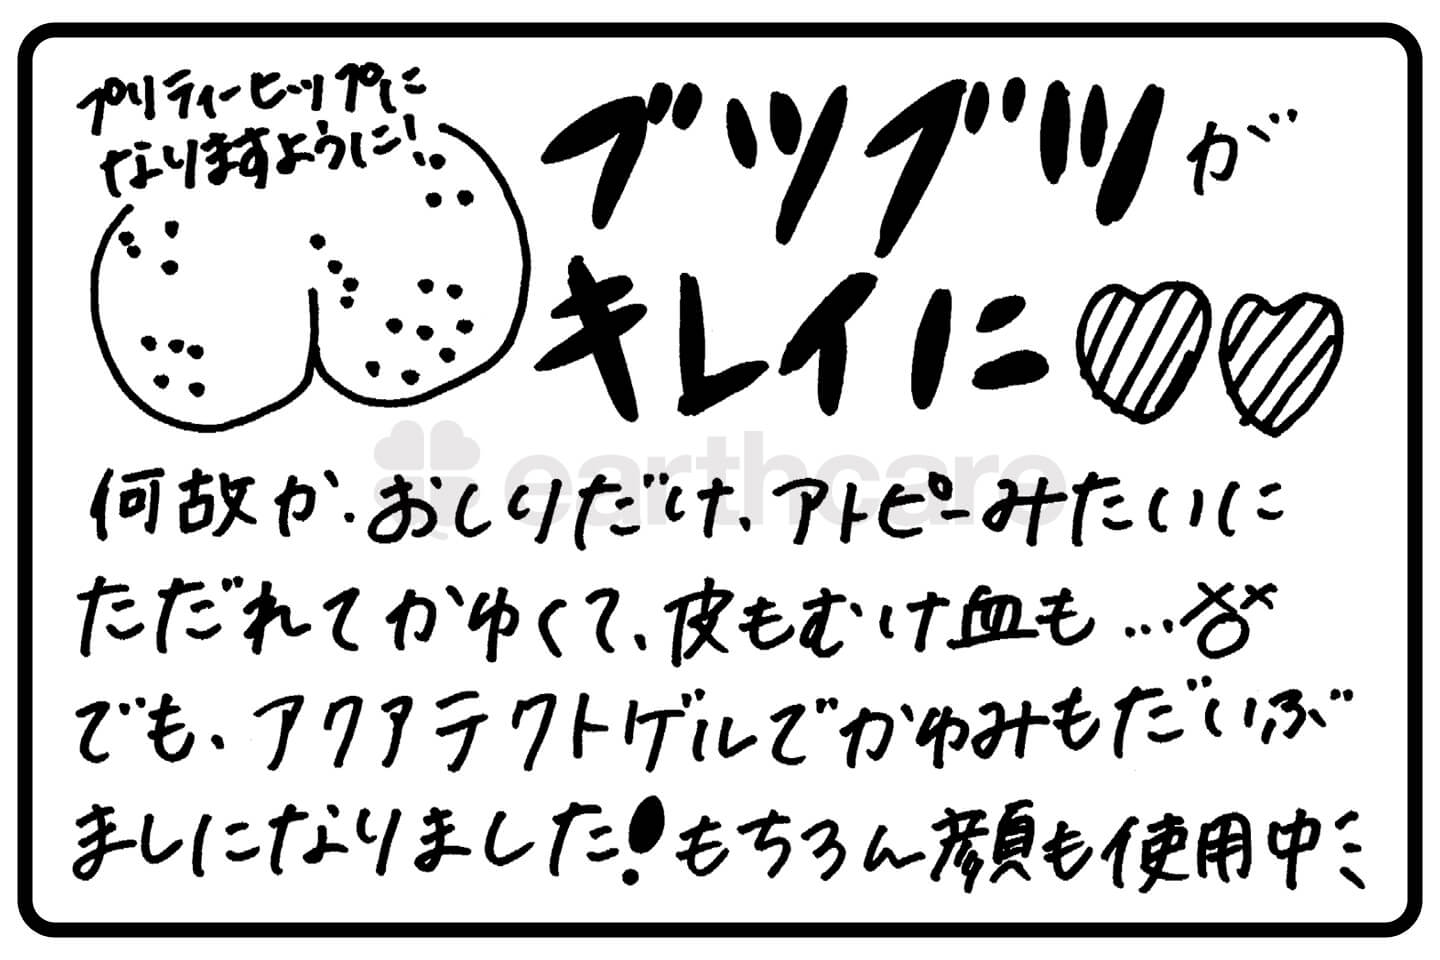 プリティーヒップに
なりますように!
ブツブツが
キレイに
earthcare
何故か、おしりだけ、アトピーみたいに
ただれてかゆくて、皮もむけ血も…
でも、アクアテクトゲルでかゆみもだいぶ
ましになりました!もちろん顔も使用中